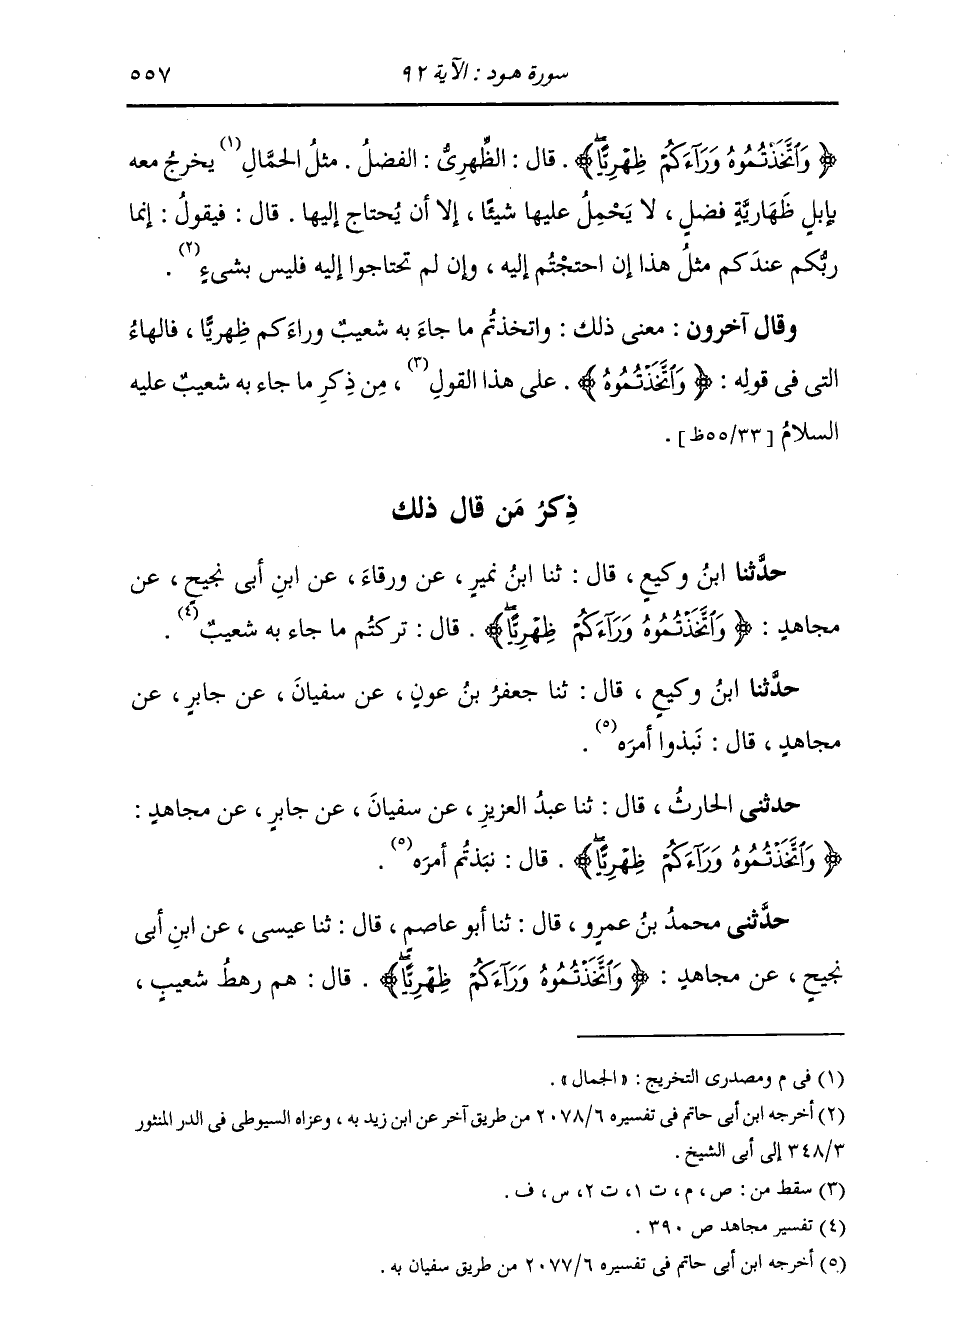 سورة هود : الآية ٩٢ ٥٥٧
﴿ وَٱتَّخَذْتُمُوهُ وَرَآءَكُمْ ظِهْرِيًّاۖ ﴾ . قال : الظِّهرىُّ : الفضلُ . مثلُ الحمَّالِ(١) يخرجُ معه
بإبلٍ ظَهَاريَّةٍ فضلٍ ، لا يَحْمِلُ عليها شيئًا ، إلا أن يُحتاج إليها . قال : فيقولُ : إنما
ربُّكم عندَكم مثلُ هذا إن احتجْتُم إليه ، وإن لم تحتاجوا إليه فليس بشىءٍ(٢) .
وقال آخرون : معنى ذلك : واتخذتُم ما جاءَ به شعيبٌ وراءَكم ظِهريًّا ، فالهاءُ
التى فى قولِه : ﴿ وَٱتَّخَذْتُمُوهُ ﴾ . على هذا القولِ(٣) ، مِن ذِكرِ ما جاء به شعيبٌ عليه
السلامُ [٥٥/٣٣ظ] .
ذِكرُ مَن قال ذلك
حدَّثنا ابنُ وكيعٍ ، قال : ثنا ابنُ نميرٍ ، عن ورقاءَ ، عن ابنِ أبى نجيحٍ ، عن
مجاهدٍ : ﴿ وَٱتَّخَذْتُمُوهُ وَرَآءَكُمْ ظِهْرِيًّاۖ ﴾ . قال : تركتُم ما جاء به شعيبٌ(٤) .
حدَّثنا ابنُ وكيعٍ ، قال : ثنا جعفرُ بنُ عونٍ ، عن سفيانَ ، عن جابرٍ ، عن
مجاهدٍ ، قال : نَبذوا أمرَه(٥) .
حدثنى الحارثُ ، قال : ثنا عبدُ العزيزِ ، عن سفيانَ ، عن جابرٍ ، عن مجاهدٍ :
﴿ وَٱتَّخَذْتُمُوهُ وَرَآءَكُمْ ظِهْرِيًّاۖ ﴾ . قال : نبَذتُم أمرَه(٥) .
حدَّثنى محمدُ بنُ عمرٍو ، قال : ثنا أبو عاصمٍ ، قال : ثنا عيسى ، عن ابنِ أبى
نجيحٍ ، عن مجاهدٍ : ﴿ وَٱتَّخَذْتُمُوهُ وَرَآءَكُمْ ظِهْرِيًّاۖ ﴾ . قال : هم رهطُ شعيبٍ ،
(١) فى م ومصدرى التخريج : «الجمال» .
(٢) أخرجه ابن أبى حاتم فى تفسيره ٢٠٧٨/٦ من طريق آخر عن ابن زيد به ، وعزاه السيوطى فى الدر المنثور
٣٤٨/٣ إلى أبى الشيخ .
(٣) سقط من : ص ، م ، ت ١ ، ت ٢ ، س ، ف .
(٤) تفسير مجاهد ص ٣٩٠ .
(٥) أخرجه ابن أبى حاتم فى تفسيره ٢٠٧٧/٦ من طريق سفيان به .